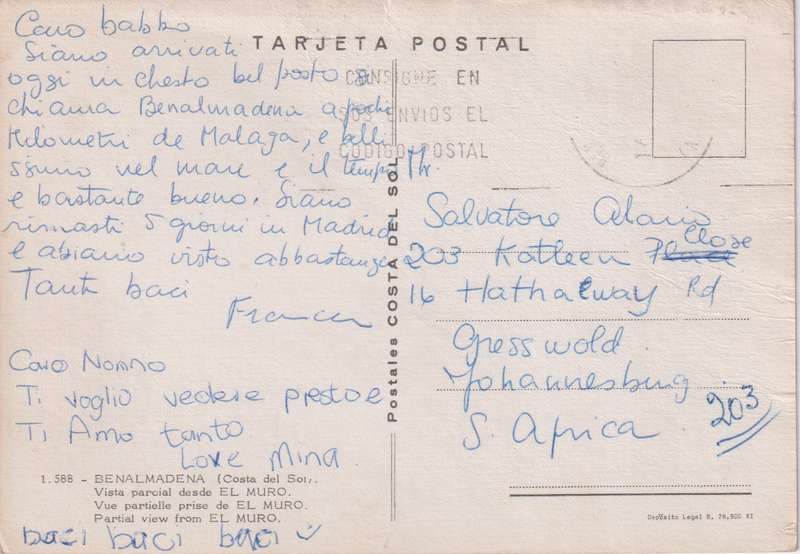 Caro babbo
Siamo arrivati
oggi in chesto bel posto si
chiama Benalmadena a pochi
kilometri de Malaga, e belli
ssimo nel mare e il tempo
e bastante bueno. Siamo
rimasti 5 giorni in Madrid
e abiamo visto abbastanza
Tanti baci
Franca
Caro Nonno
Ti voglio vedere presto e
Ti Amo tanto
Love Mina
1.588 - BENALMADENA (Costa del Sol).
Vista parcial desde EL MURO.
Vue partielle prise de EL MURO.
Partial view from EL MURO.
baci baci baci
TARJETA POSTAL
CONSIGNE EN
SUS ENVIOS EL
CODIGO POSTAL
Postales COSTA DEL SOL
Mr.
Salvatore
203 Katleen Close
16 Hathalway Rd
Gresswold.
Johannesburg
S. Africa
203
Depósito Legal B. 78,900 XI